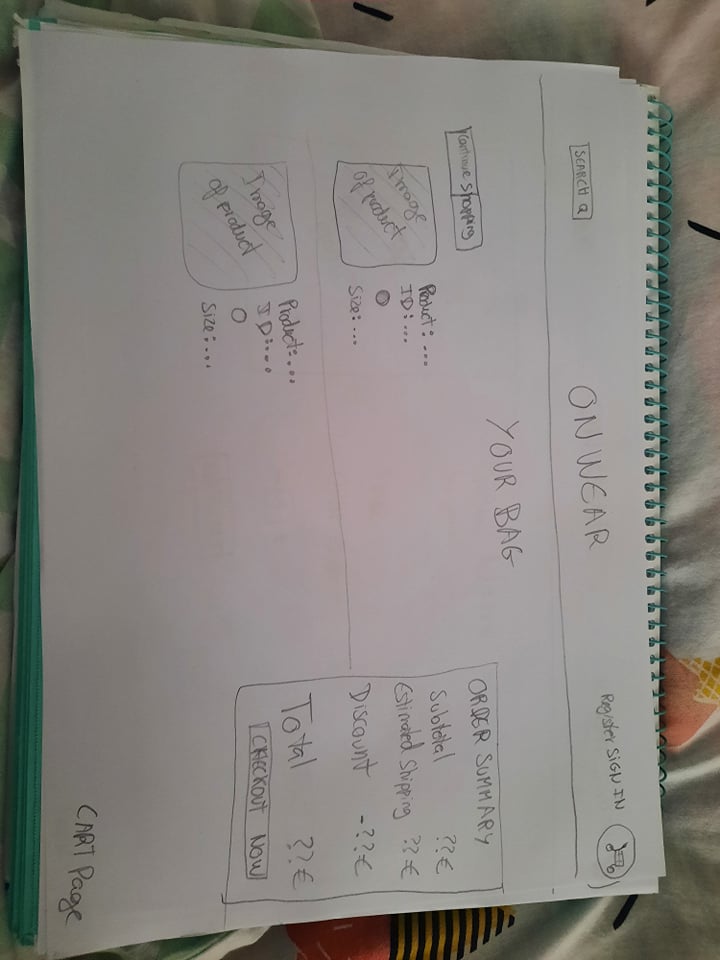 SEARCH
ON WEAR
Register SIGN IN
YOUR BAG
Continue shopping
Image
of product
Product: ...
ID: ...
Size: ...
Image
of product
Product: ...
ID: ...
Size: ...
ORDER SUMMARY
Subtotal ??€
Estimated Shipping ??€
Discount -??€
Total ??€
CHECKOUT NOW
CART Page